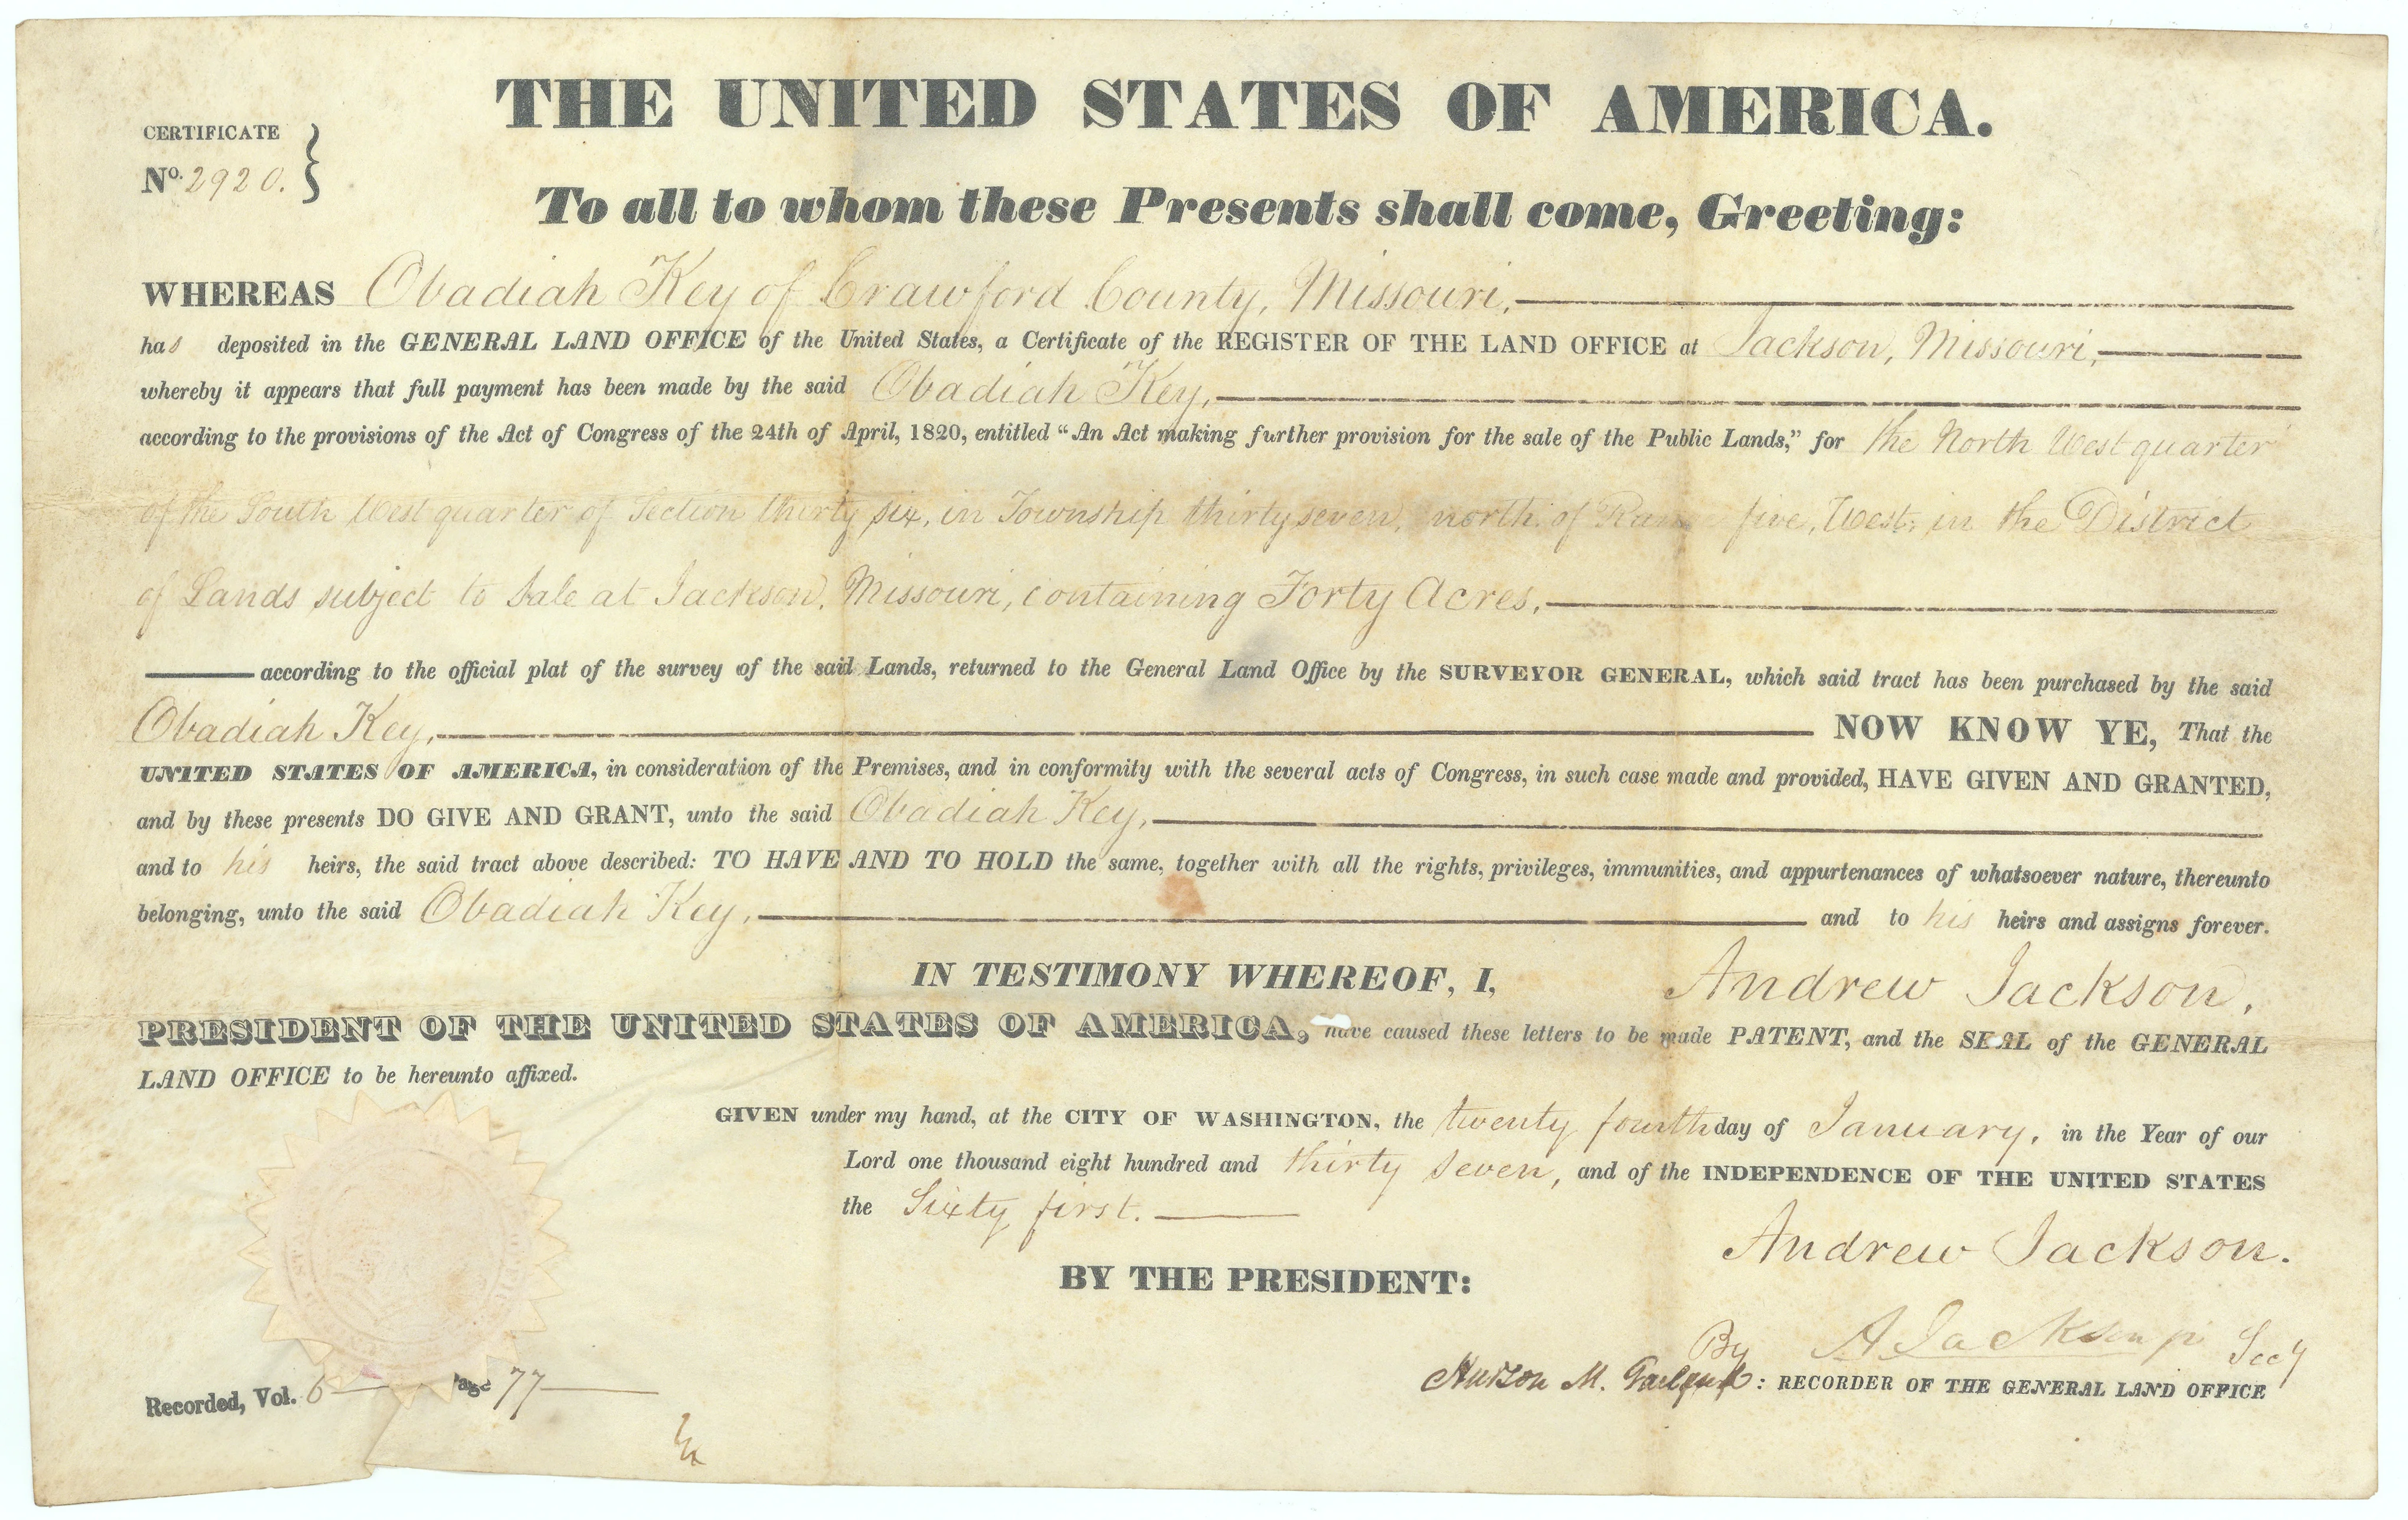 THE UNITED STATES OF AMERICA.
CERTIFICATE
No. 2920.
To all to whom these Presents shall come, Greeting:
WHEREAS Obadiah Key of Crawford County, Missouri,
has deposited in the GENERAL LAND OFFICE of the United States, a Certificate of the REGISTER OF THE LAND OFFICE at Jackson, Missouri,
whereby it appears that full payment has been made by the said Obadiah Key,
according to the provisions of the Act of Congress of the 24th of April, 1820, entitled “An Act making further provision for the sale of the Public Lands,” for the North West quarter
of the South West quarter of Section thirty six, in Township thirty seven, north, of Range five, West, in the District
of Lands subject to Sale at Jackson, Missouri, containing Forty Acres,
according to the official plat of the survey of the said Lands, returned to the General Land Office by the SURVEYOR GENERAL, which said tract has been purchased by the said
Obadiah Key, NOW KNOW YE, That the
UNITED STATES OF AMERICA, in consideration of the Premises, and in conformity with the several acts of Congress, in such case made and provided, HAVE GIVEN AND GRANTED,
and by these presents DO GIVE AND GRANT, unto the said Obadiah Key,
and to his heirs, the said tract above described: TO HAVE AND TO HOLD the same, together with all the rights, privileges, immunities, and appurtenances of whatsoever nature, thereunto
belonging, unto the said Obadiah Key, and to his heirs and assigns forever.
IN TESTIMONY WHEREOF, I, Andrew Jackson,
PRESIDENT OF THE UNITED STATES OF AMERICA, have caused these letters to be made PATENT, and the SEAL of the GENERAL
LAND OFFICE to be hereunto affixed.
GIVEN under my hand, at the CITY OF WASHINGTON, the twenty fourth day of January, in the Year of our
Lord one thousand eight hundred and thirty seven, and of the INDEPENDENCE OF THE UNITED STATES
the Sixty first.
Andrew Jackson.
BY THE PRESIDENT:
By A Jackson jr Secy
Hudson M. : RECORDER OF THE GENERAL LAND OFFICE
Recorded, Vol. 6 Page 77